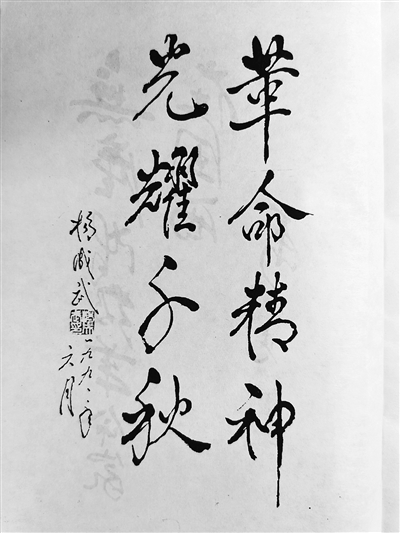 革命精神
光耀千秋
楊成武
一九九二年
六月